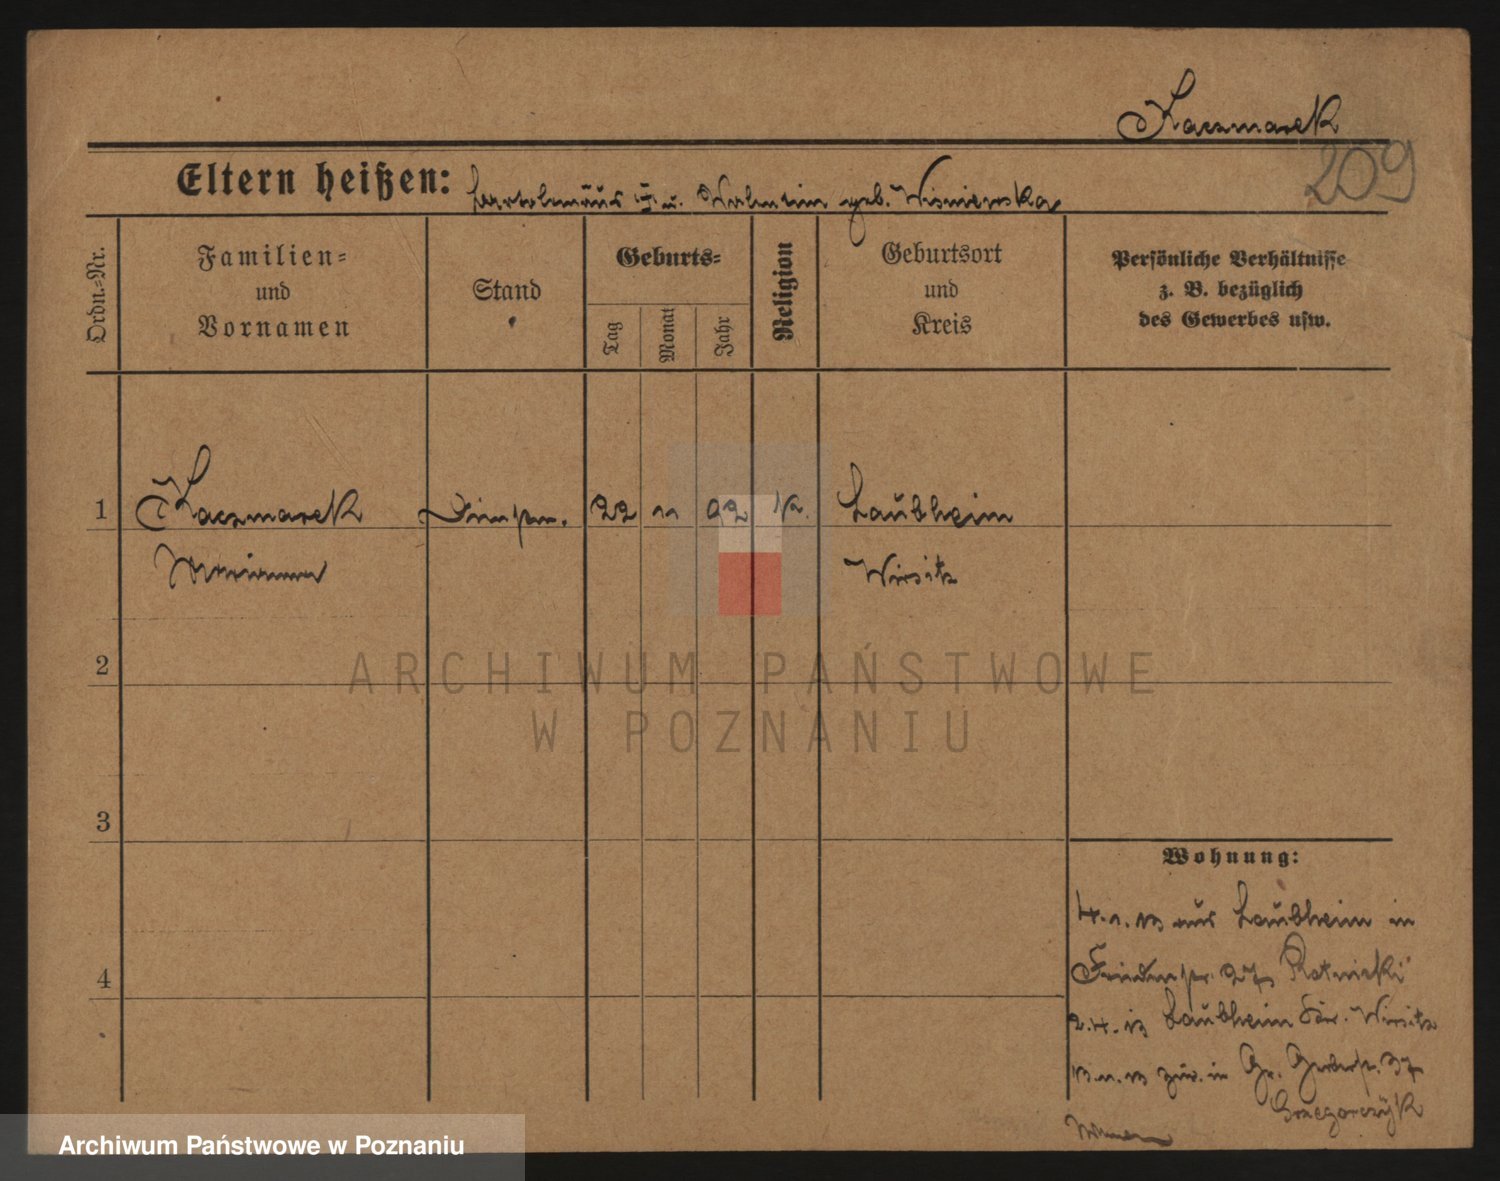 Kaczmarek
209
Eltern heißen: Bartolomäus † u. Valentin geb. Wisniewska
Ordn.-Nr.
Familien- und Vornamen
Stand
Geburts-
Tag
Monat
Jahr
Religion
Geburtsort und Kreis
Persönliche Verhältnisse
z. B. bezüglich
des Gewerbes usw.
1 Kaczmarek 22 11 92 k. Laubheim
Marianna Wirsitz
2
3
4
Wohnung:
4.1.13 aus Laubheim in
27 Ratnicki
2.4.13 Laubheim Kr. Wirsitz
13.11.13 zur. in Gr. Gerberstr. 37
Grzegorczyk
ARCHIWUM PAŃSTWOWE
W POZNANIU
Archiwum Państwowe w Poznaniu